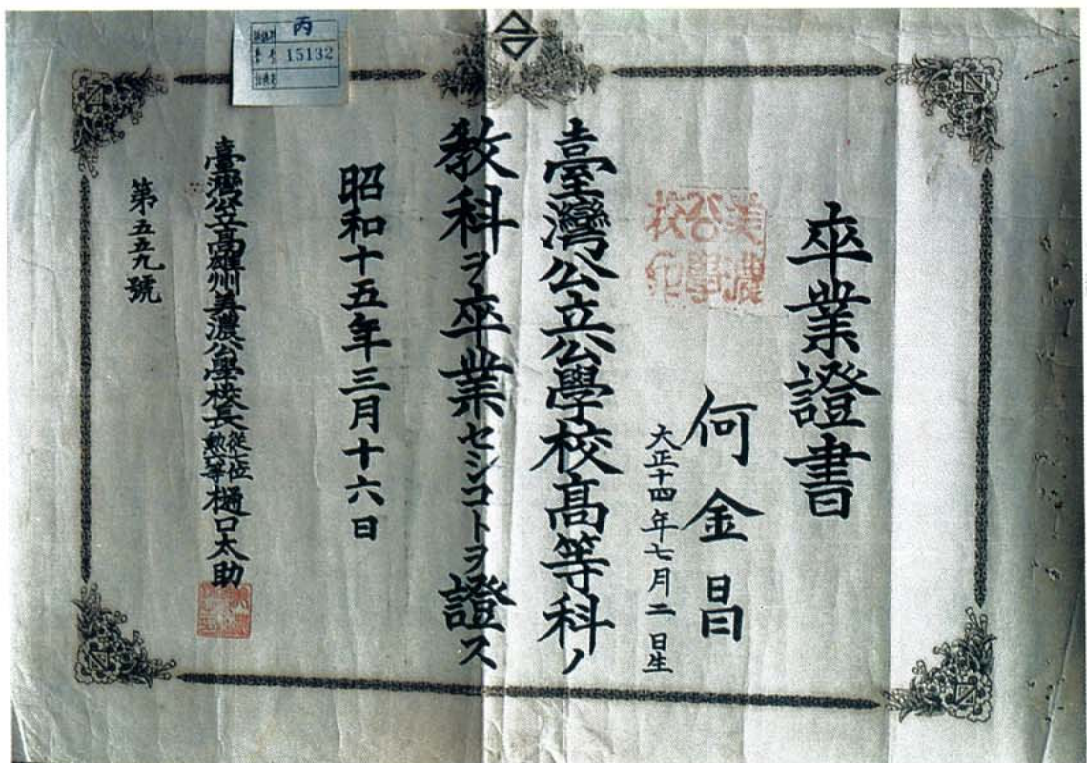 卒業證書
何金昌
大正十四年七月二日生
美濃
公學
校印
臺灣公立公學校高等科ノ
教科ヲ卒業セシコトヲ證ス
昭和十五年三月十六日
臺灣公立高雄州美濃公學校長 樋口太助
第五五九號
丙
15132